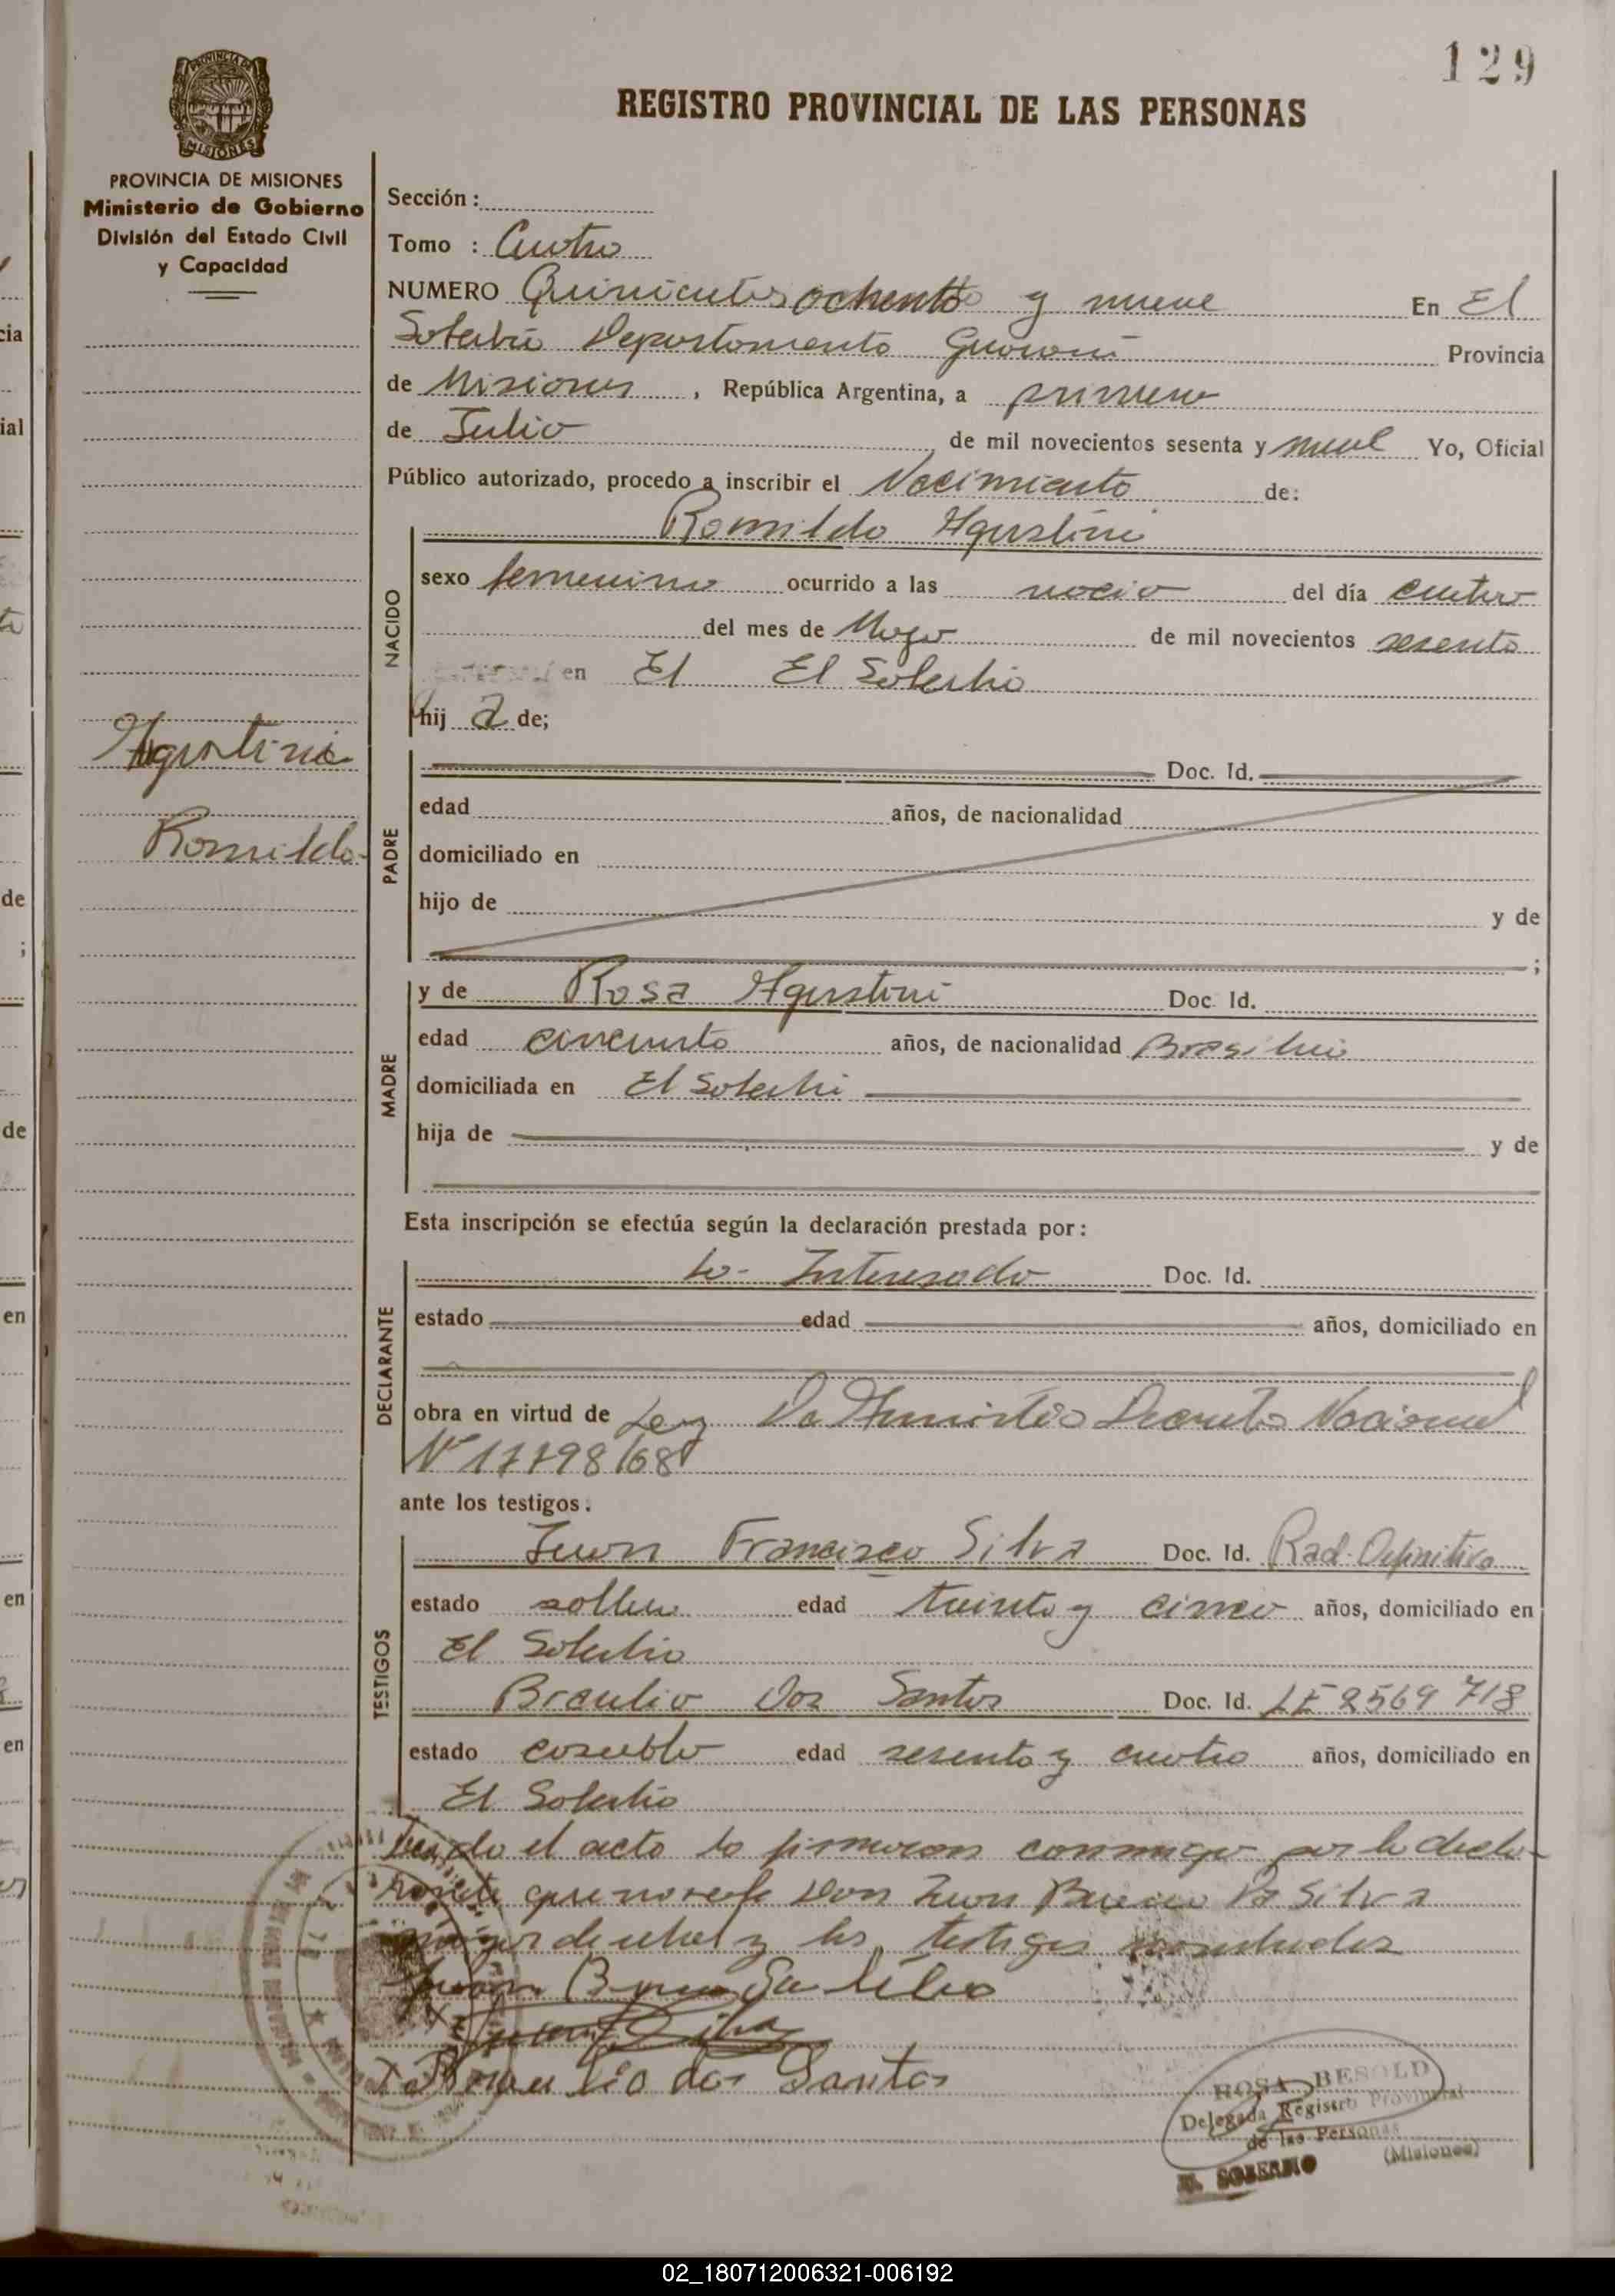 129
PROVINCIA DE
MISIONES
REGISTRO PROVINCIAL DE LAS PERSONAS
PROVINCIA DE MISIONES
Ministerio de Gobierno
División del Estado Civil
y Capacidad
Sección :
Tomo : Cuatro
NUMERO Quinientos ochenta y nueve En El
Soberbio Departamento Guaraní Provincia
de Misiones , República Argentina, a primero
de Julio de mil novecientos sesenta y nueve Yo, Oficial
Público autorizado, procedo a inscribir el Nacimiento de:
Romilda Agustini
NACIDO
sexo femenino ocurrido a las del día cuatro
del mes de Mayo de mil novecientos sesenta
en El El Soberbio
hij a de;
Agustini
Romilda
PADRE
Doc. Id.
edad años, de nacionalidad
domiciliado en
hijo de y de
;
MADRE
y de Rosa Agustini Doc. Id.
edad cincuenta años, de nacionalidad Brasileña
domiciliada en El Soberbio
hija de y de
Esta inscripción se efectúa según la declaración prestada por:
DECLARANTE
La Interesada Doc. Id.
estado edad años, domiciliado en
obra en virtud de Ley De Amnistia Decreto Nacional
Nº 17798/68
ante los testigos:
TESTIGOS
Juan Francisco Silva Doc. Id. Rad. Definitiva
estado soltero edad treinta y cinco años, domiciliado en
El Soberbio
Braulio Dos Santos Doc. Id. LE 2569 718
estado casado edad sesenta y cuatro años, domiciliado en
El Soberbio
Leida el acta la firmaron conmigo por la decla-
rante que no sabe Don Juan Bueno Da Silva
mayor de edad y los testigos
Juan Bueno Da Silva
Juan F. Silva
Braulio dos Santos
ROSA BESOLD
Delegada Registro Provincial
de las Personas
EL SOBERBIO (Misiones)
02_180712006321-006192